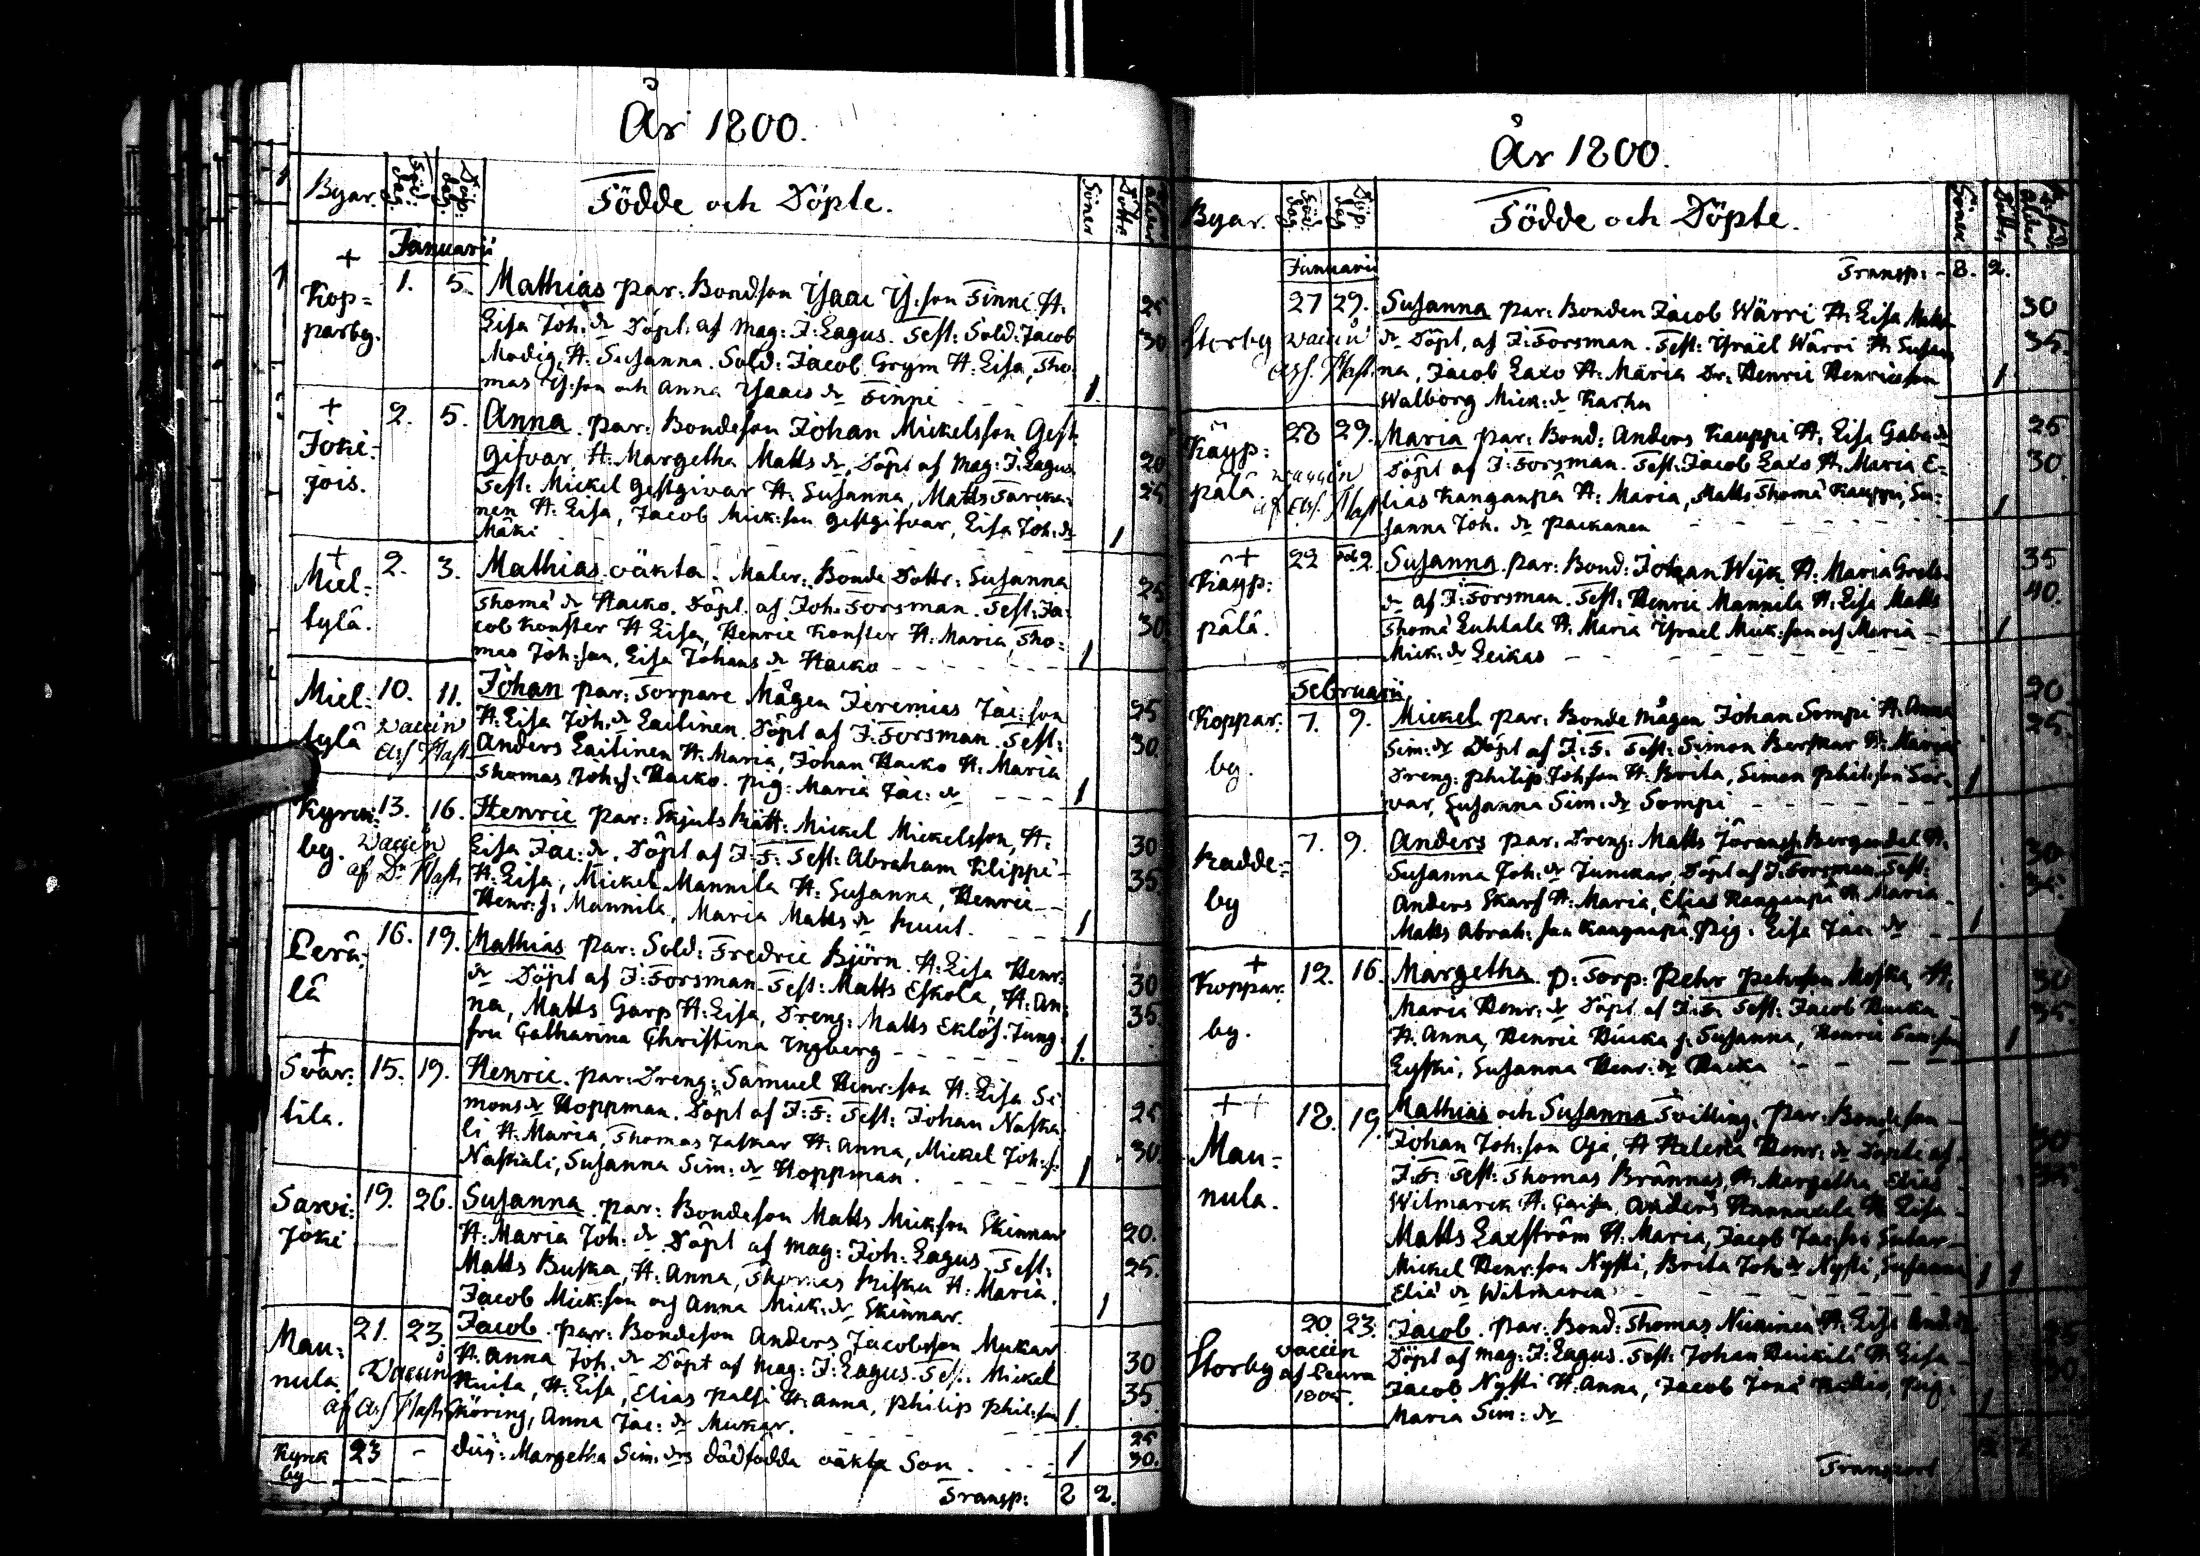 År 1800.
Byar. Föd: dag. Döp: dag. Födde och Döpte. Söner Döttr
Januarii
+ Kop= parbg. 1. 5. Mathias par: Bondson Isaac Is:son Finni H.
Eisa Joh: dr Döpt. af Mag: J: Lagus. Test: Sold: Jacob
Modig, H. Susanna. Sold: Jacob Grym H. Eisa, Tho=
mas Is:son och Anna Isaacs dr Finni - - - 1.
25 30
+ Joki= jois. 2. 5. Anna par: Bondeson Johan Mickelsson Gest
gifvar H. Margetha Matts dr, Döpt af Mag: J. Lagus
Test: Mickel Gestgivar H: Susanna, Matts
nen H: Eisa, Jacob Mick:son Gestgifvar, Eisa Joh: dr
Mäki - - - 1
20 25
+ Miel= tylä. 2. 3. Mathias oäkta. Mater: Bonde Dottr: Susanna
Thomæ dr Hacko. Döpt. af Joh. Forsman. Test: Ja=
cob Konster H Eisa, Henric Konster H: Maria Tho=
mas Joh:son, Eisa Johans dr Hacko - - - 1
25 30
Miel= tylä 10. 11. Johan par: Torpare Mågen Jeremias Jac:son
Vaccin
H. Eisa Joh. dr Laitinen. Döpt af J: Forsman. Test:
Anders Laitinen H: Maria, Johan Hacko H: Maria
Thomas Joh: s: Hacko. Pig: Maria Jac: dr - - - 1
25 30
Kyrck= by. 13. 16. Henric par: Skjuts Rätt: Mickel Mickelsson, H:
Vaccin af Dr
Eisa Jac: dr. Döpt af J: F: Test: Abraham Klippi
H: Eisa, Mickel Mannila H: Susanna, Henric
Henr: s: Mannila, Maria Matts dr Kuut. - - 1
30 35
Perä= lä 16. 19. Mathias par: Sold: Fredric Björn. H: Eisa Henr:
dr Döpt af J: Forsman. Test: Matts Eskola, H: An=
na, Matts Garp H: Eisa, Dreng: Matts Eklöf. Jung
fru Catharina Christina Ingberg - - - 1.
30 35
+ Svar= tila. 15. 19. Henric. par: Dreng: Samuel Henr:son H: Eisa Si
mons dr Hoppman. Döpt af J: F: Test: Johan Naska
li H: Maria, Thomas Jaskar H: Anna, Mickel Joh: s:
Naskali, Susanna Sim: dr Hoppman. - - 1
25 30
Sarvi= joki 19. 26. Susanna. par: Bondeson Matts Mickson Skinnar
H: Maria Joh: dr Döpt af Mag: Joh: Lagus. Test:
Matts Buska, H: Anna, Thomas H: Maria.
Jacob Mick:son och Anna Mick: dr Skinnar. 1
20. 25.
Mau= nula 21. 23. Jacob. par: Bondeson Anders Jacobsson Muckar
Vaccin
H. Anna Joh. dr Döpt af Mag: J: Lagus. Test: Mickel
H. Eisa, Elias Palsi H: Anna, Philip Phil:son
Anna Jac: dr Muckar. - - 1.
30 35
Kyrck by 23 - Margetha Sim: drs Dödfödda oäkta Son. - - - 1
25 30.
Transp: 8 2.
År 1800.
Byar. Föd: dag Döp: dag Födde och Döpte. Söner Döttr
Januarii Transp: - 8. 2.
Storby 27 29. Susanna par: Bonden Jacob Wärri H. Eisa Matts
Vaccin
dr Döpt. af J: Forsman. Test: Israël Wärri H: Susan
na, Jacob Laxo H: Maria Dr: Henric Henricsson
Walborg Mick: dr Karhu 1
30 35.
Käyp= pälä. 28 29. Maria par: Bond: Anders Kauppi H. Eisa Gabr dr
Vaccin
Döpt af J: Forsman. Test: Jacob Laxo H: Maria E=
lias Kangaspä H: Maria, Matts Thomæ Kauppi, Su=
sanna Joh. dr Packanen - - - 1
25 30.
+ Käyp= pälä. 22 Feb 2 Susanna. par: Bond: Johan Wijk H: Maria Grels
dr af J: Forsman. Test: Henric Mannila H: Eisa Matts
Thomæ Luhtala H: Maria Israel Mick:son och Maria
Mick: dr Leikas - - - 1
35 40.
Februarii
Koppar= by. 7. 9. Mickel par: Bonde Mågen Johan Sompi H. Anna
Sim: dr Döpt af J: F: Test: Simon H: Maria
Dreng: Philip Joh:son H: Brita, Simon Phil:son Sor=
var, Susanna Sim: dr Sompi - - - 1
20 25.
Kadde= by 7. 9. Anders par: Dreng: Matts Bergudd H.
Susanna Joh: dr Junickar, Döpt af J: Forsman. Test:
Anders Skarf H: Maria, Elias Kangaspä H: Maria
Matts Abrah: son Kangaspä. Pig: Eisa Jac: dr - 1
30
+ Koppar= by. 12. 16. Margetha. p: Torp: Pehr Pehrsson H:
Maria Henr: dr Döpt af J: F: Test: Jacob
H. Anna, Henric Susanna, Henric
Susanna Henr: dr - - - 1
30 35.
+ + Mau= nula. 18. 19. Mathias och Susanna Tvilling. par: Bondeson
Johan Joh:son Oja, H Helena Henr: dr Döpte af
J: F: Test: Thomas Brännas, H: Margetha, Elias
Witmarck H: Caisa, Anders H: Eisa
Matts Laxström H: Maria, Jacob
Mickel Henr:son Nysti, Brita Joh: dr Nysti, Susanna
Eliæ dr Witmarck - - - 1 1
30
Storby 20. 23. Jacob. par: Bond: Thomas H: Eisa And: dr
Vaccin af 1805.
Döpt af Mag: J: Lagus. Test: Johan H: Eisa
Jacob Nysti H: Anna, Jacob Pig:
Maria Sim: dr 1
Transport